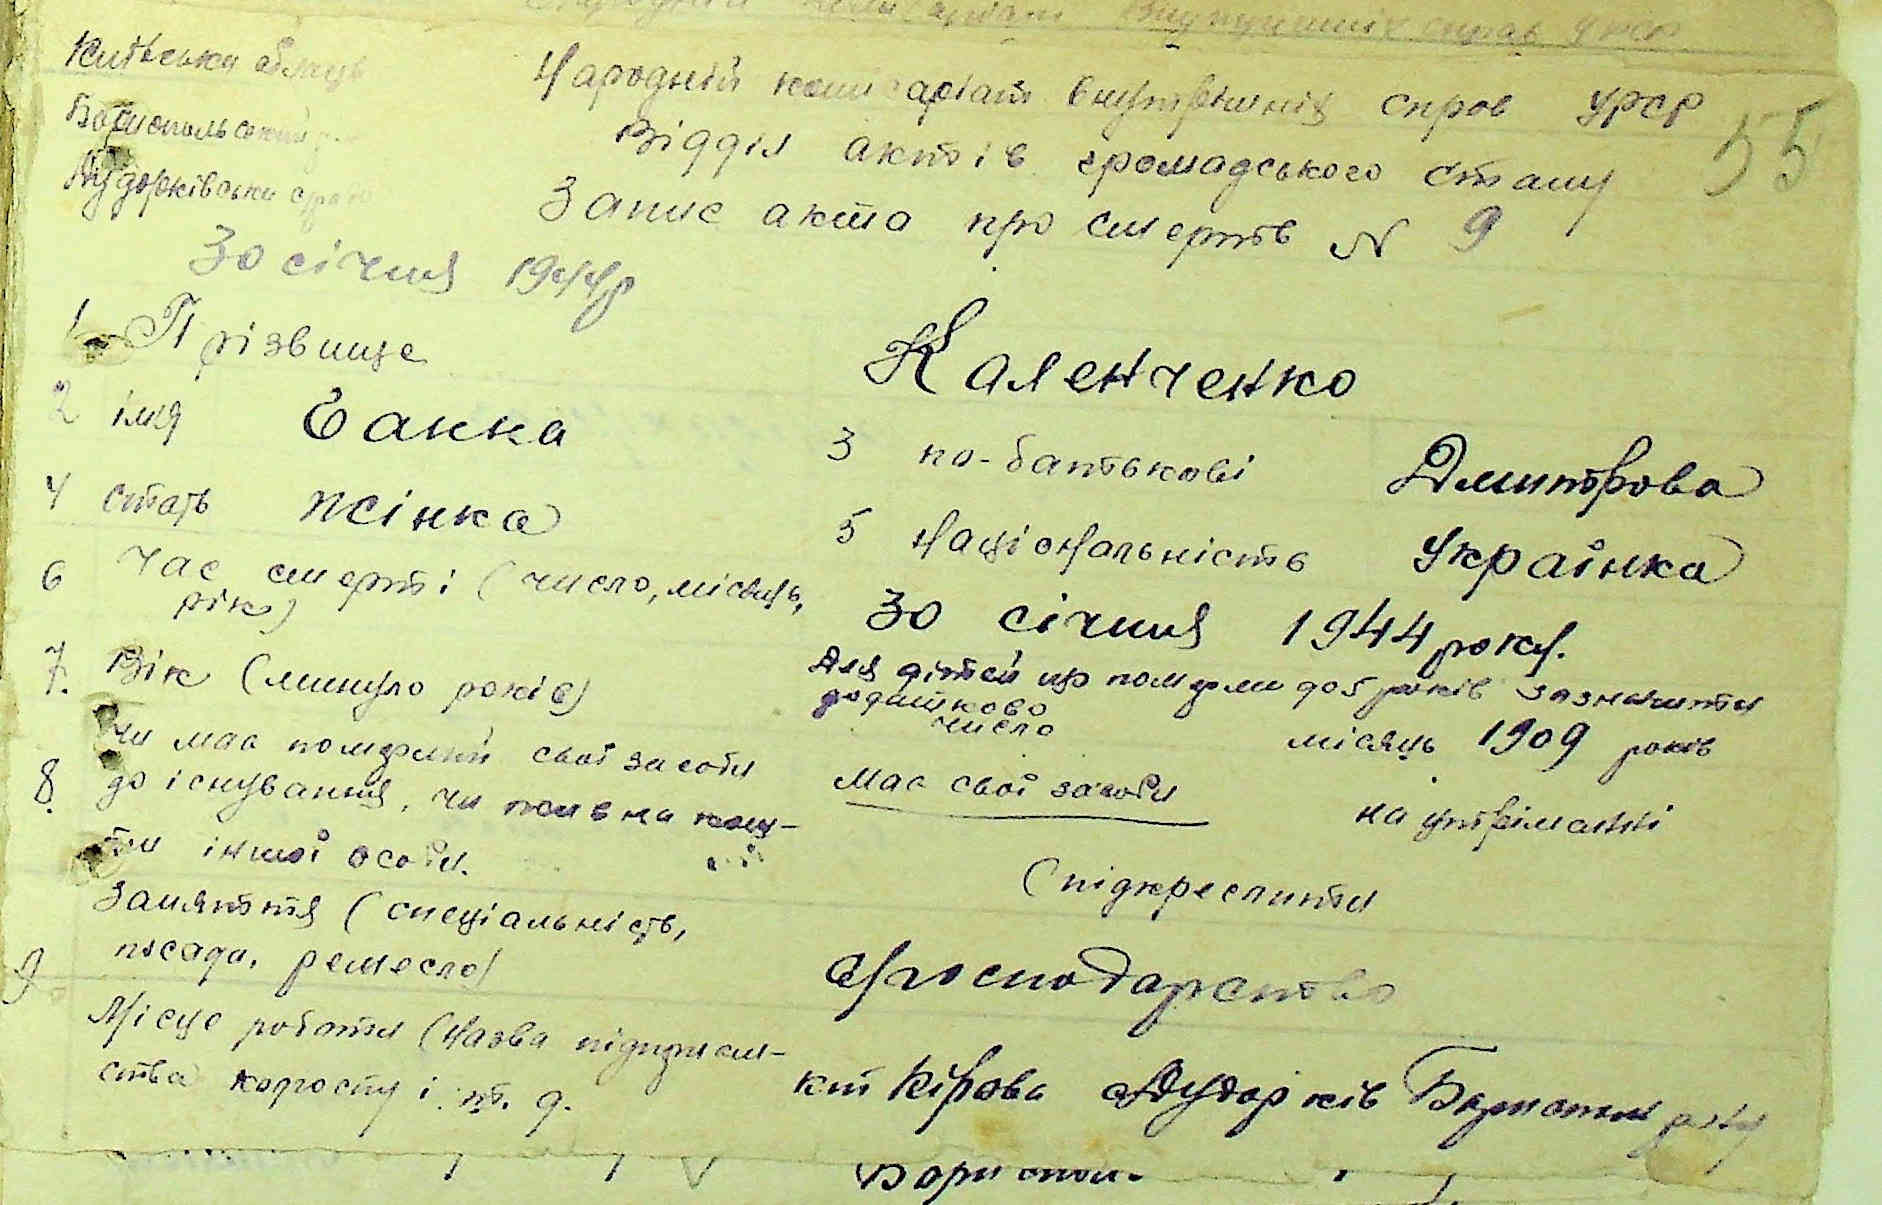 Київська область
Народній комісаріат внутрішніх справ УРСР
Бориспольський р-н
Відділ актів громадського стану
55
Дударківська
Запис акта про смерть N 9
30 січня 1944р
1 Прізвище Каленченко
2 імя Ганна 3 по-батькові Дмитрова
4 стать жінка 5 Національність Українка
6 Час смерті (число, місяць, рік) 30 січня 1944 року.
7. Вік (минуло років) Для дітей що померли до 5 років зазначити
додатково
число місяць 1909 років
8. Чи мав померлий свої засоби
до існування, чи жив на кош-
ти іншої особи. мав свої засоби на утриманні
(підкреслити
Заняття (спеціальність,
посада, ремесло) Господарство
9 Місце роботи (Назва підприєм-
ства колгоспу і т. д. кт Кірова Дударків Борисполь р-ну
Борисполь